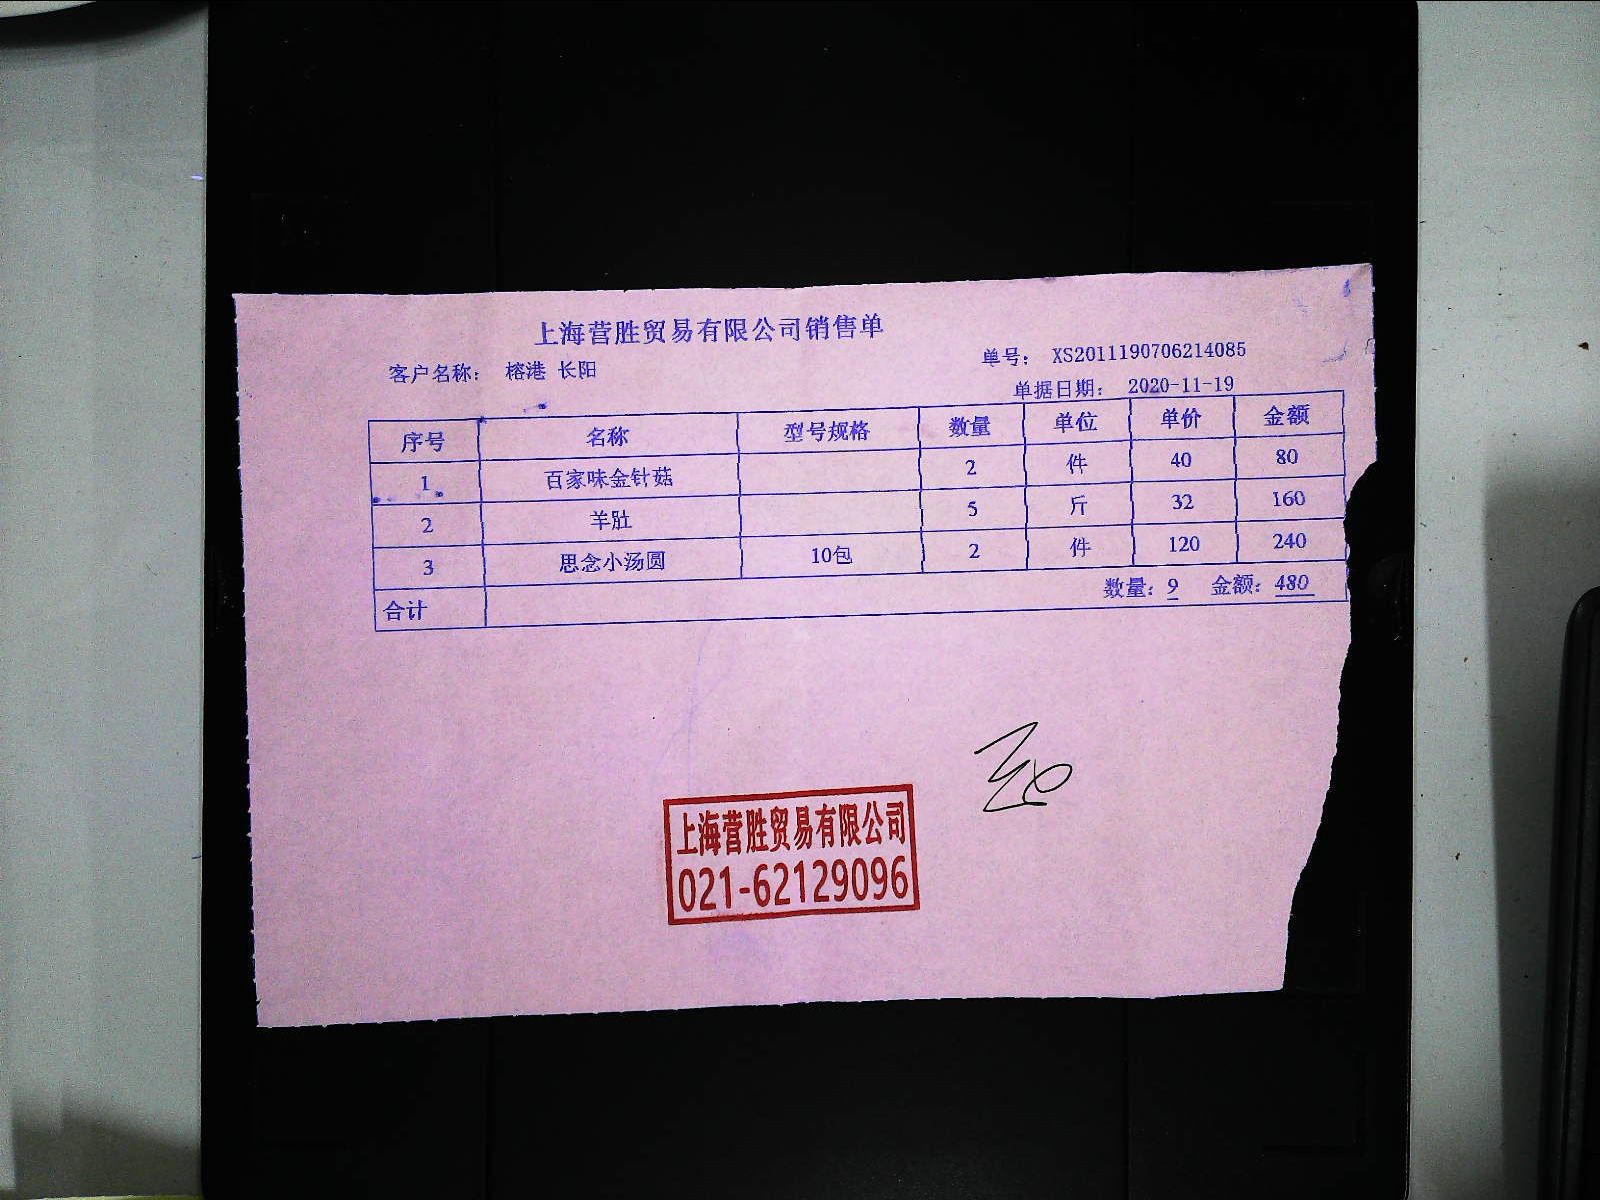 上海营胜贸易有限公司销售单
客户名称： 榕港 长阳
单号： XS2011190706214085
单据日期： 2020-11-19
序号 名称 型号规格 数量 单位 单价 金额
1 百家味金针菇 2 件 40 80
2 羊肚 5 斤 32 160
3 思念小汤圆 10包 2 件 120 240
合计 数量：9 金额：480
上海营胜贸易有限公司
021-62129096